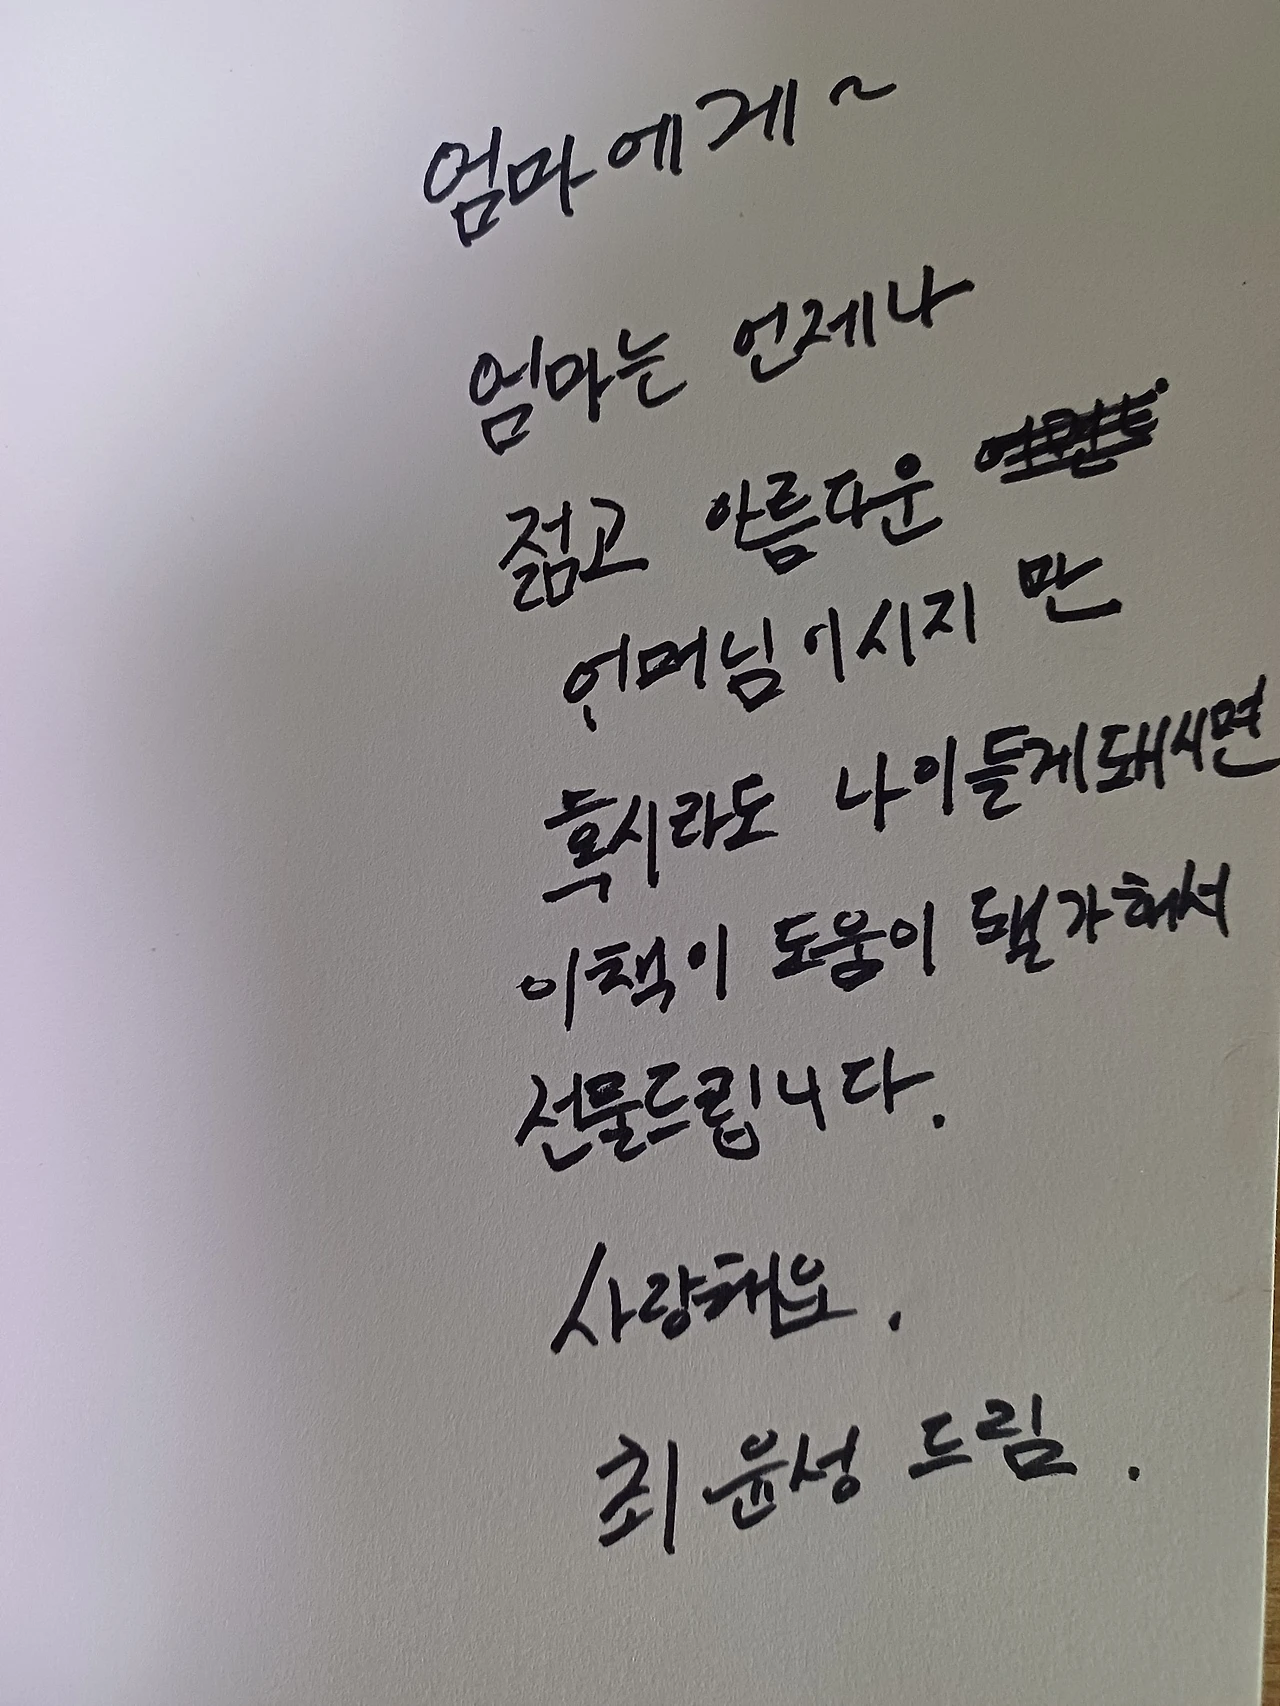 엄마에게~
엄마는 언제나
젊고 아름다운
어머님이시지 만
혹시라도 나이들게돼시면
이책이 도움이 됄가해서
선물드립니다.
사랑해요.
최윤성 드림.